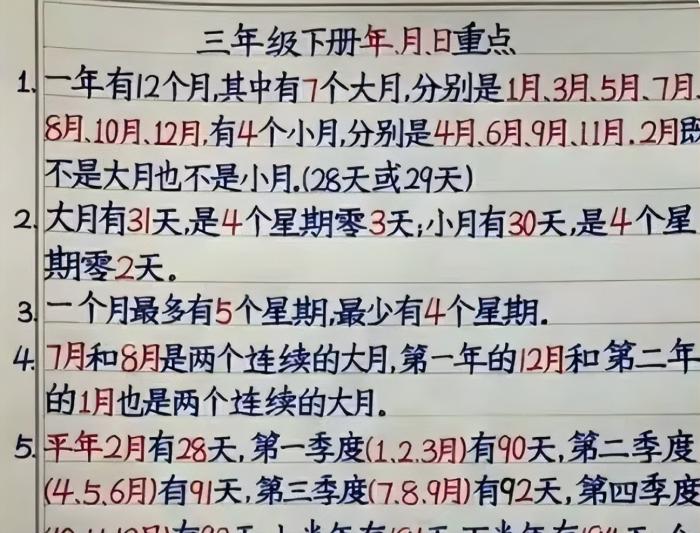 三年级下册年、月、日重点
1. 一年有12个月,其中有7个大月,分别是1月、3月、5月、7月、
8月、10月、12月,有4个小月,分别是4月、6月、9月、11月.2月既
不是大月也不是小月.(28天或29天)
2. 大月有31天,是4个星期零3天;小月有30天,是4个星
期零2天。
3. 一个月最多有5个星期,最少有4个星期.
4. 7月和8月是两个连续的大月,第一年的12月和第二年
的1月也是两个连续的大月。
5. 平年2月有28天,第一季度(1.2.3月)有90天,第二季度
(4.5.6月)有91天,第三季度(7.8.9月)有92天,第四季度